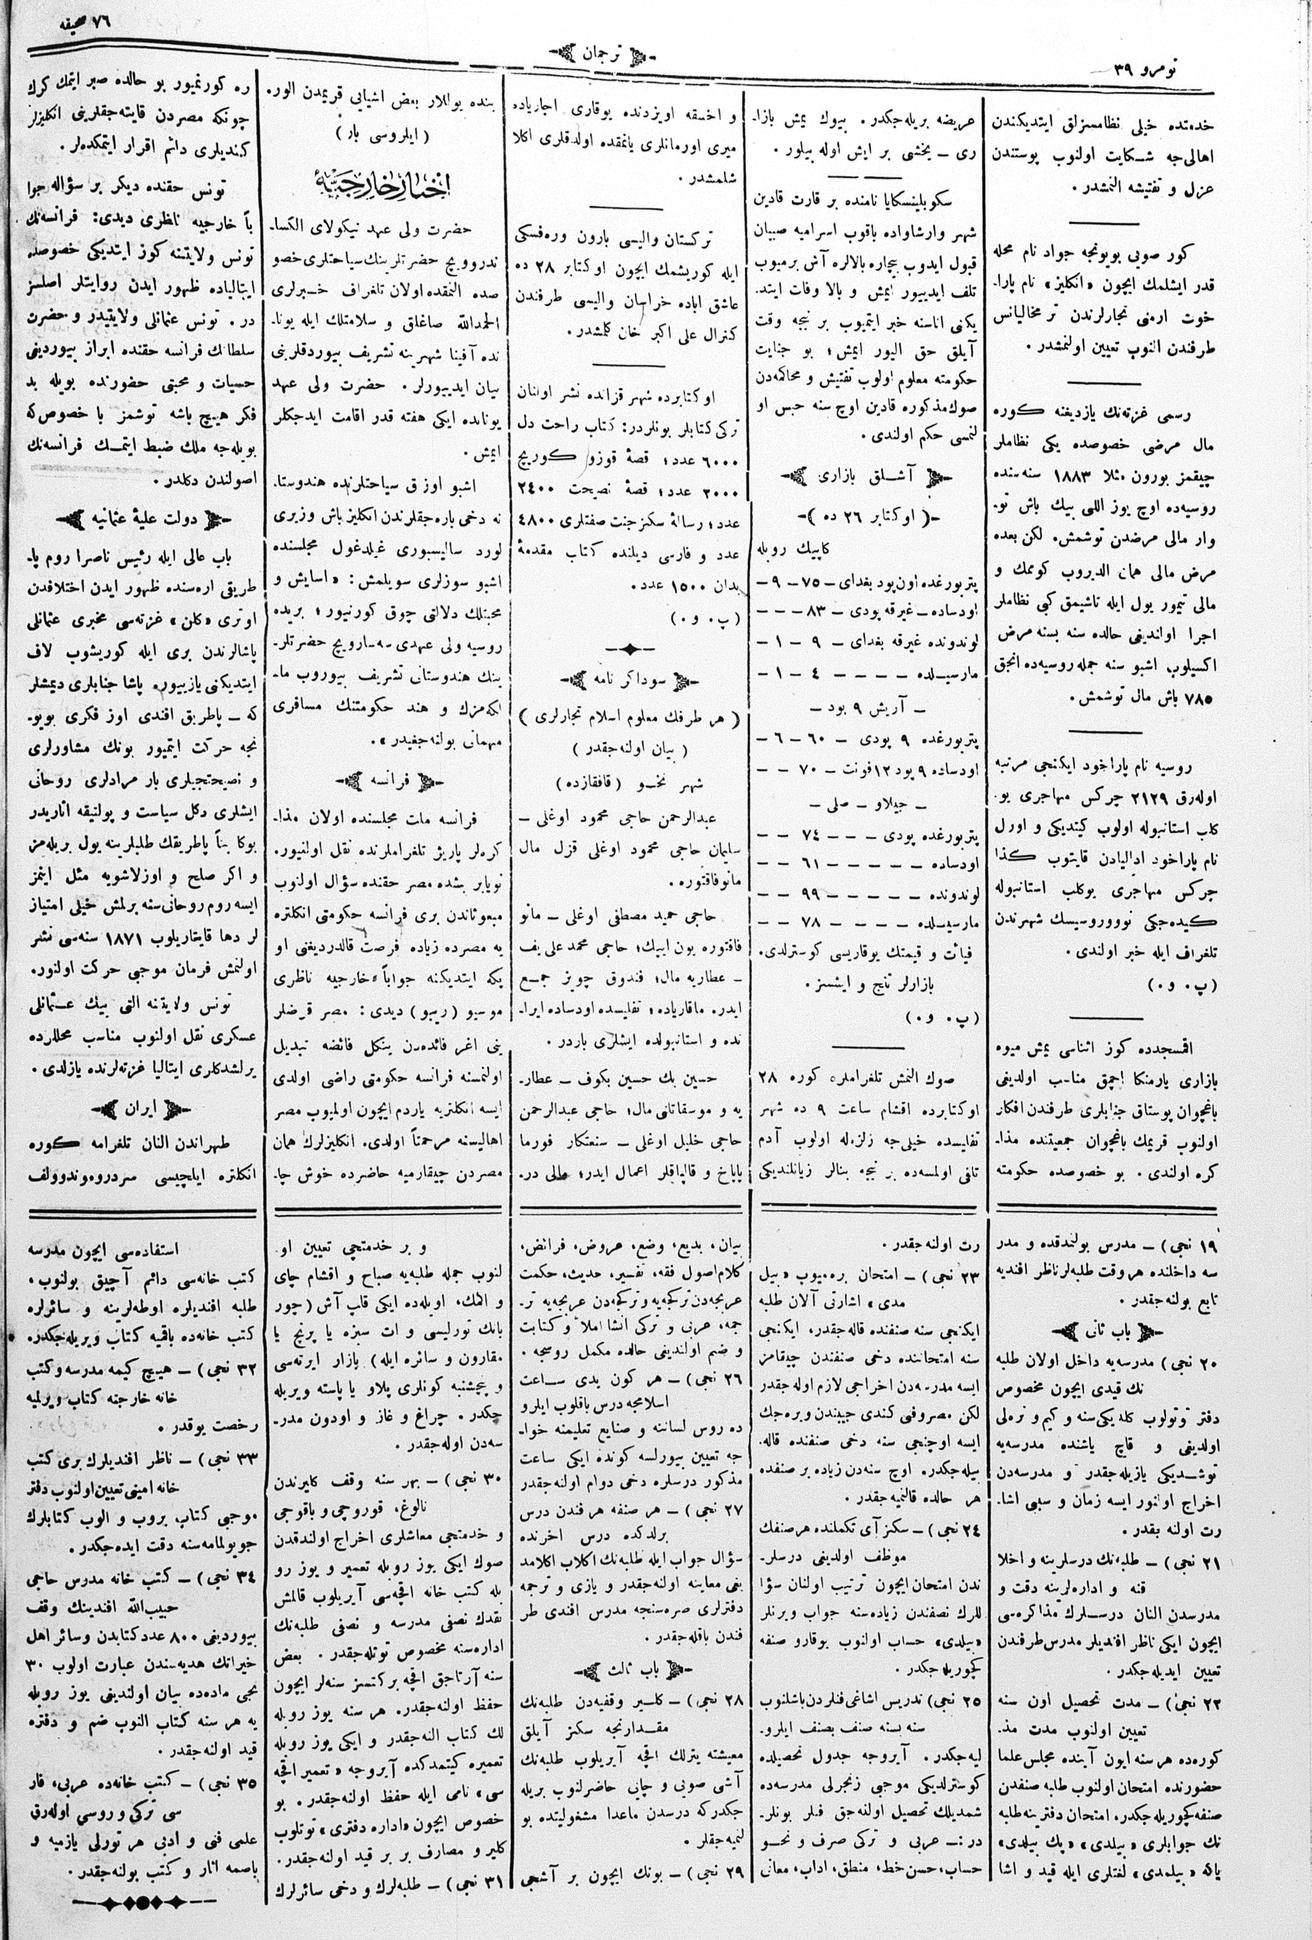 نومرو ٣٩
ترجمان
٧٦ صحیفه
خدمتده خیلی نظامسزلق ایتدیکندن
اهالی‌جه شکایت اولنوب پوستندن
عزل و تفتیشه النمشدر.
کور صوبی بویونجه جواد نام محله
قدر ایشلمك ایچون «انکلیز» نام پارا-
خوت ارمنی تجارلرندن تر مخالیانس
طرفندن النوب تعیین اولنمشدر.
رسمی غزته‌نك یازدیغنه کوره
مال مرضی خصوصده یکی نظاملر
چیقمز بورون مثلا ١٨٨٣ سنه‌سنده
روسیه‌ده اوچ یوز اللی بیك باش تو-
وار مالی مرضدن توشمش. لکن بعده
مرض مالی همان الدیروب کوممك و
مالی تیمور یول ایله تاشیمق کبی نظاملر
اجرا اولندیغی حالده سنه بسنه مرض
اکسیلوب اشبو سنه جمله روسیه‌ده انجق
٧٨٥ باش مال توشمش.
روسیه نام پاراخود ایکنجی مرتبه
اوله‌رق ٢١٢٩ چرکس مهاجری یو-
کلب استانبوله اولوب کیتدیکی و اورل
نام پاراخود ادالیادن قایتوب کذا
چرکس مهاجری یوکلب استانبوله
کیده‌جکی نووروسیسك شهرندن
تلغراف ایله خبر اولندی.
(پ. و.)
اقمسجدده کوز اثناسی یمش میوه
بازاری یارمنکا اچمق مناسب اولدیغی
باغچوان پوستاق جنابلری طرفندن افکار
اولنوب قریمك باغچوان جمعیتنده مذا-
کره اولندی. بو خصوصده حکومته
عریضه بریله‌جکدر. بیوك یمش بازا-
ری — یخشی بر ایش اوله بیلور.
سکوبلینسکایا نامنده بر قارت قادین
شهر وارشاواده یاقوب اسرامیه صبیان
قبول ایدوب بیچاره بالالره آش برمیوب
تلف ایدیبیور ایمش و بالا وفات ایتد-
یکنی اناسنه خبر ایتمیوب بر نیجه وقت
آیلق حق الیور ایمش؛ بو جنایت
حکومته معلوم اولوب تفتیش و محاکمه‌دن
صوك مذکوره قادین اوچ سنه حبس او
لنمسی حکم اولندی.
آشلق بازاری
(اوکتابر ٢٦ ده)
کاپیك روبله
پتربورغده اون‌پود بغدای — ٧٥ — ٩ —
اودساده — غیرقه پودی — ٨٣ — — —
لوندونده غیرقه بغدای — ٩ — ١ —
مارسیلده — — — — ٤ — ١ —
— آریش ٩ پود —
پتربورغده ٩ پودی — ٦٠ — ٦ —
اودساده ٩ پود ١٢ فونت — ٧٠ — —
— جیلاو — صلی —
پتربورغده پودی — — ٧٤ — —
اودساده — — — — ٦١ — —
لوندونده — — — — ٩٩ — —
مارسیلده — — — — ٧٨ — —
فیأت و قیمتك یوقاریسی کوسترلدی.
بازارلر تنج و ایشسز.
(پ. و.)
صوك النمش تلغرامله کوره ٢٨
اوکتابرده اقشام ساعت ٩ ده شهر
تفلیسده خیلی‌جه زلزله اولوب آدم
تافی اولمسه‌ده بر نیجه بنالر زیانلندیکی
و اخسقه اویزدنده یوقاری اجاریاده
میری اورمانلری یانمقده اولدقلری اکلا
شلمشدر.
ترکستان والیسی بارون وره‌فسکی
ایله کوریشمك ایچون اوکتابر ٢٨ ده
عاشق اباده خراسان والیسی طرفندن
کنرال علی اکبر خان کلمشدر.
اوکتابرده شهر قزانده نشر اولنان
ترکی کتابلر بونلردر: کتاب راحت دل
٦٠٠٠ عدد؛ قصهٔ قوزو کورپچ
٢٠٠٠ عدد؛ قصهٔ نصیحت ٢٤٠٠
عدد؛ رسالهٔ سکز جنت صفتلری ٤٨٠٠
عدد و فارسی دیلنده کتاب مقدمهٔ
بدان ١٥٠٠ عدد.
(پ. و.)
سوداکر نامه
(هر طرفك معلوم اسلام تجارلری)
(بیان اولنه‌جقدر)
شهر نخو (قافقازده)
عبدالرحمن حاجی محمود اوغلی —
سلیمان حاجی محمود اوغلی قزل مال
مانوفاقتوره.
حاجی حمید مصطفی اوغلی — مانو
فاقتوره یون ایپك؛ حاجی محمد علی یف
— عطاریه مال؛ فندوق چویز جمع
ایدر. ماقاریاده؛ تفلیسده اودساده ایرا-
نده و استانبولده ایشلری باردر.
حسین بك حسین بکوف — عطار-
یه و موسقاتانی مال؛ حاجی عبدالرحمن
حاجی خلیل اوغلی — سنعتکار فورما
پاپاخ و قالپاقلر اعمال ایدر؛ مالی در-
بنده یوللار بعض اشیایی قریمدن الور.
(ایلروسی بار)
اخبار خارجیه
حضرت ولی عهد نیکولای الکسا-
ندروویچ حضرتلرینك سیاحتلری خصو
صده النمقده اولان تلغراف خبرلری
الحمدالله صاغلق و سلامتلك ایله یونا-
نده آفینا شهرینه تشریف بیوردقلرینی
بیان ایدیبورلر. حضرت ولی عهد
یوناندە ایکی هفته قدر اقامت ایدجکلر
ایمش.
اشبو اوزق سیاحتلرنده هندوستا-
نه دخی باره‌جقلرندن انکلیز باش وزیری
لورد سالیسبوری غیلدغول مجلسنده
اشبو سوزلری سویلمش: «اسایش و
محبتك دلالتی چوق کورنیور؛ بریده
روسیه ولی عهدی سه‌سارویچ حضرتلر-
ینك هندوستانی تشریف بیوروب ما-
لکه‌مزك و هند حکومتنك مسافری
مهمانی بولنه‌جغیدر».
فرانسه
فرانسه ملت مجلسنده اولان مذا-
کره‌لر پاریژ تلغراملرنده نقل اولنیور.
نویابر بشده مصر حقنده سؤال اولنوب
مبعوثاندن بری فرانسه حکومتی انکلتره
یه مصرده زیاده فرصت قالدردیغنی او
یکه ایتدیکنه جواباً خارجیه ناظری
موسیو (ریبو) دیدی: مصر قرضلر
ینی اغر فائده‌دن ینکل فائضه تبدیل
اولنمسنه فرانسه حکومتی راضی اولدی
ایسه انکلتریه یاردم ایچون اولمیوب مصر
اهالیسنه مرحمتاً اولدی. انکلیزلرك همان
مصردن چیقارمیه حاضرده خوش چا-
ره کورنمیور بو حالده صبر ایتمك کرك
چونکه مصردن قایته‌جقلرینی انکلیزلر
کندیلری دائم اقرار ایتمکده‌لر.
تونس حقنده دیکر بر سؤاله جوا
باً خارجیه ناظری دیدی: فرانسه‌نك
تونس ولایتنه کوز ایتدیکی خصوصده
ایتالیاده ظهور ایدن روایتلر اصلسز
در. تونس عثمانلی ولایتیدر و حضرت
سلطانك فرانسه حقنده ابراز بیوردینی
حسیات و محبتی حضورنده بویله بد
فکر هیچ باشه توشمز با خصوص که
بویله‌جه ملك ضبط ایتمك فرانسه‌نك
اصولندن دکلدر.
دولت علیهٔ عثمانیه
باب عالی ایله رئیس ناصرا روم پا-
طریقی اره‌سنده ظهور ایدن اختلافدن
اوتری «کلن» غزته‌سی مخبری عثمانلی
پاشالرندن بری ایله کوریشوب لاف
ایتدیکنی یازیبور. پاشا جنابلری دیمشلر
که — پاطریق افندی اوز فکری بویو-
نجه حرکت ایتمیور بونك مشاورلری
و نصیحتجیلری بار مرادلری روحانی
ایشلری دکل سیاست و پولتیقه اثاریدر
بوکا بناً پاطریقك طلبلرینه یول بریله‌مز
و اکر صلح و اوزلاشویه مثل ایتمز
ایسه روم روحانی‌سنه برلمش خیلی امتیاز
لر دها قایتاریلوب ١٨٧١ سنه‌سی نشر
اولنمش فرمان موجبی حرکت اولنور.
تونس ولایتنه التی بیك عثمانلی
عسکری نقل اولنوب مناسب محللرده
یرلشدکلری ایتالیا غزته‌لرنده یازلدی.
ایران
طهراندن النان تلغرامه کوره
انکلتره ایلچیسی سردروموندوولف
١٩ نجی) — مدرس بولندقده و مدر
سه داخلنده هر وقت طلبه‌لر ناظر افندیه
تابع بولنه‌جقدر.
باب ثانی
٢٠ نجی) مدرسه‌یه داخل اولان طلبه
نك قیدی ایچون مخصوص
دفتر توتولوب کلدیکی سنه و کیم و نره‌لی
اولدیغی و قاچ یاشنده مدرسه‌یه
توشدیکی یازیله‌جقدر و مدرسه‌دن
اخراج اولنور ایسه زمان و سببی اشا-
رت اولنه بقدر.
٢١ نجی) — طلبه‌نك درسلرینه و اخلا
قنه و اداره‌لرینه دقت و
مدرسدن النان درسلرك مذاکره‌سی
ایچون ایکی ناظر افندیلر مدرس طرفندن
تعیین ایدیله‌جکدر.
٢٢ نجی) — مدت تحصیل اون سنه
تعیین اولنوب مدت مذ-
کوره‌ده هر سنه ایون آینده مجلس علما
حضورنده امتحان اولنوب طلبه صنفدن
صنفه کچوریله‌جکدر. امتحان دفترینه طلبه
نك جوابلری «بیلدی» «پك بیلدی»
یاکه «بیلمدی» لفتلری ایله قید و اشا
رت اولنه‌جقدر.
٢٣ نجی) — امتحان بره‌میوب «بیل
مدی» اشارتی آلان طلبه
ایکنجی سنه صنفنده قاله‌جقدر، ایکنجی
سنه امتحاننده دخی صنفندن چیقامز
ایسه مدرسه‌دن اخراجی لازم اوله‌جقدر
لکن مصروفی کندی جیبندن ویره‌جك
ایسه اوچنجی سنه دخی صنفنده قاله-
بیله‌جکدر. اوچ سنه‌دن زیاده بر صنفده
هر حالده قالنمیه‌جقدر.
٢٤ نجی) — سکز آی تکملنده هر صنفك
موظف اولدیغی درسلر-
ندن امتحان ایچون ترتیب اولنان سؤا
للرك نصفندن زیاده‌سنه جواب ویرنلر
«بیلدی» حساب اولنوب یوقارو صنفه
کچوریله‌جکدر.
٢٥ نجی) تدریس اشاغی فنلردن باشلنوب
سنه بسنه صنف بصنف ایلرو-
لیه‌جکدر. آیروجه جدول تحصیلده
کوسترلدیکی موجبی زنجرلی مدرسه‌ده
شمدیلك تحصیل اولنه‌جق فنلر بونلر-
در:— عربی و ترکی صرف و نحو
حساب، حسن خط، منطق، اداب، معانی
بیان، بدیع، وضع، عروض، فرائض،
کلام اصول فقه، تفسیر، حدیث، حکمت
عربجه‌دن ترکجه‌یه و ترکجه‌دن عربجه‌یه تر-
جمه، عربی و ترکی انشا املاً و کتابت
و ضم اولندیغی حالده مکمل روسجه.
٢٦ نجی) — هر کون یدی ساعت
اسلامجه درس باقلوب ایلرو
ده روس لساننه و صنایع تعلیمنه خوا-
جه تعیین بیورلسه کونده ایکی ساعت
مذکور درسلره دخی دوام اولنه‌جقدر
٢٧ نجی) — هر صنفه هر فندن درس
برلدکده درس اخرنده
سؤال جواب ایله طلبه‌نك اکلاب اکلامد
یغی معاینه اولنه‌جقدر و یازی و ترجمه
دفترلری صره‌سنجه مدرس افندی طر
فندن باقله‌جقدر.
باب ثالث
٢٨ نجی) — کلیر وقفیه‌دن طلبه‌نك
مقدارنجه سکز آیلق
معیشته یترلك اقچه آیریلوب طلبه‌نك
آشی صوبی و چایی حاضرلنوب بریله
جکدر که درسدن ماعدا مشغولیتده بو
لنمیه‌جقلر.
٢٩ نجی) — بونك ایچون بر آشجی
و بر خدمتجی تعیین او-
لنوب جمله طلبه‌یه صباح و اقشام چای
و اتمك، اویله‌ده ایکی قاب آش (چور
بانك تورلیسی و ات سبزه یا پرنچ یا
مقارون و سائره ایله) بازار ایرته‌سی
و پنجشنبه کونلری پلاو یا پاسته ویریله
جکدر. چراغ و غاز و اودون مدر-
سه‌دن اوله‌جقدر.
٣٠ نجی) — بهر سنه وقف کلیرندن
نالوغ، قوروچی و باقوجی
و خدمتجی معاشلری اخراج اولندقدن
صوك ایکی یوز روبله تعمیر و یوز رو
بله کتب خانه اقچه‌سی آیریلوب قالمش
نقدك نصفی مدرسه و نصفی طلبه‌نك
اداره‌سنه مخصوص توتله‌جقدر. بعض
سنه آرتاجق اقچه برکتسز سنه‌لر ایچون
حفظ اولنه‌جقدر. هر سنه یوز روبله
لك کتاب النه‌جقدر و ایکی یوز روبله
تعمیره کیتمدکده آیروجه «تعمیر اقچه
سی» نامی ایله حفظ اولنه‌جقدر. بو
خصوص ایچون «اداره دفتری» توتلوب
کلیر و مصارف بر بر قید اولنه‌جقدر.
٣١ نجی) — طلبه‌لرك و دخی سائرلرك
استفاده‌سی ایچون مدرسه
کتب خانه‌سی دائم آچیق بولنوب،
طلبه افندیلره اوطه‌لرینه و سائرلره
کتب خانه‌ده باقمیه کتاب ویریله‌جکدر.
٣٢ نجی) — هیچ کیمه مدرسه و کتب
خانه خارجنه کتاب ویرلمیه
رخصت یوقدر.
٣٣ نجی) — ناظر افندیلرك بری کتب
خانه امینی تعیین اولنوب دفتر
موجبی کتاب بروب و الوب کتابلرك
جویولمامه‌سنه دقت ایده‌جکدر.
٣٤ نجی) — کتب خانه مدرس حاجی
حبیب‌الله افندینك وقف
بیوردیغی ٨٠٠ عدد کتابدن و سائر اهل
خیراتك هدیه‌سندن عبارت اولوب ٣٠
نجی ماده‌ده بیان اولندیغی یوز روبله
یه هر سنه کتاب النوب ضم و دفتره
قید اولنه‌جقدر.
٣٥ نجی) — کتب خانه‌ده عربی، فار
سی ترکی و روسی اوله‌رق
علمی فنی و ادبی هر تورلی یازمیه و
باصمه اثار و کتب بولنه‌جقدر.